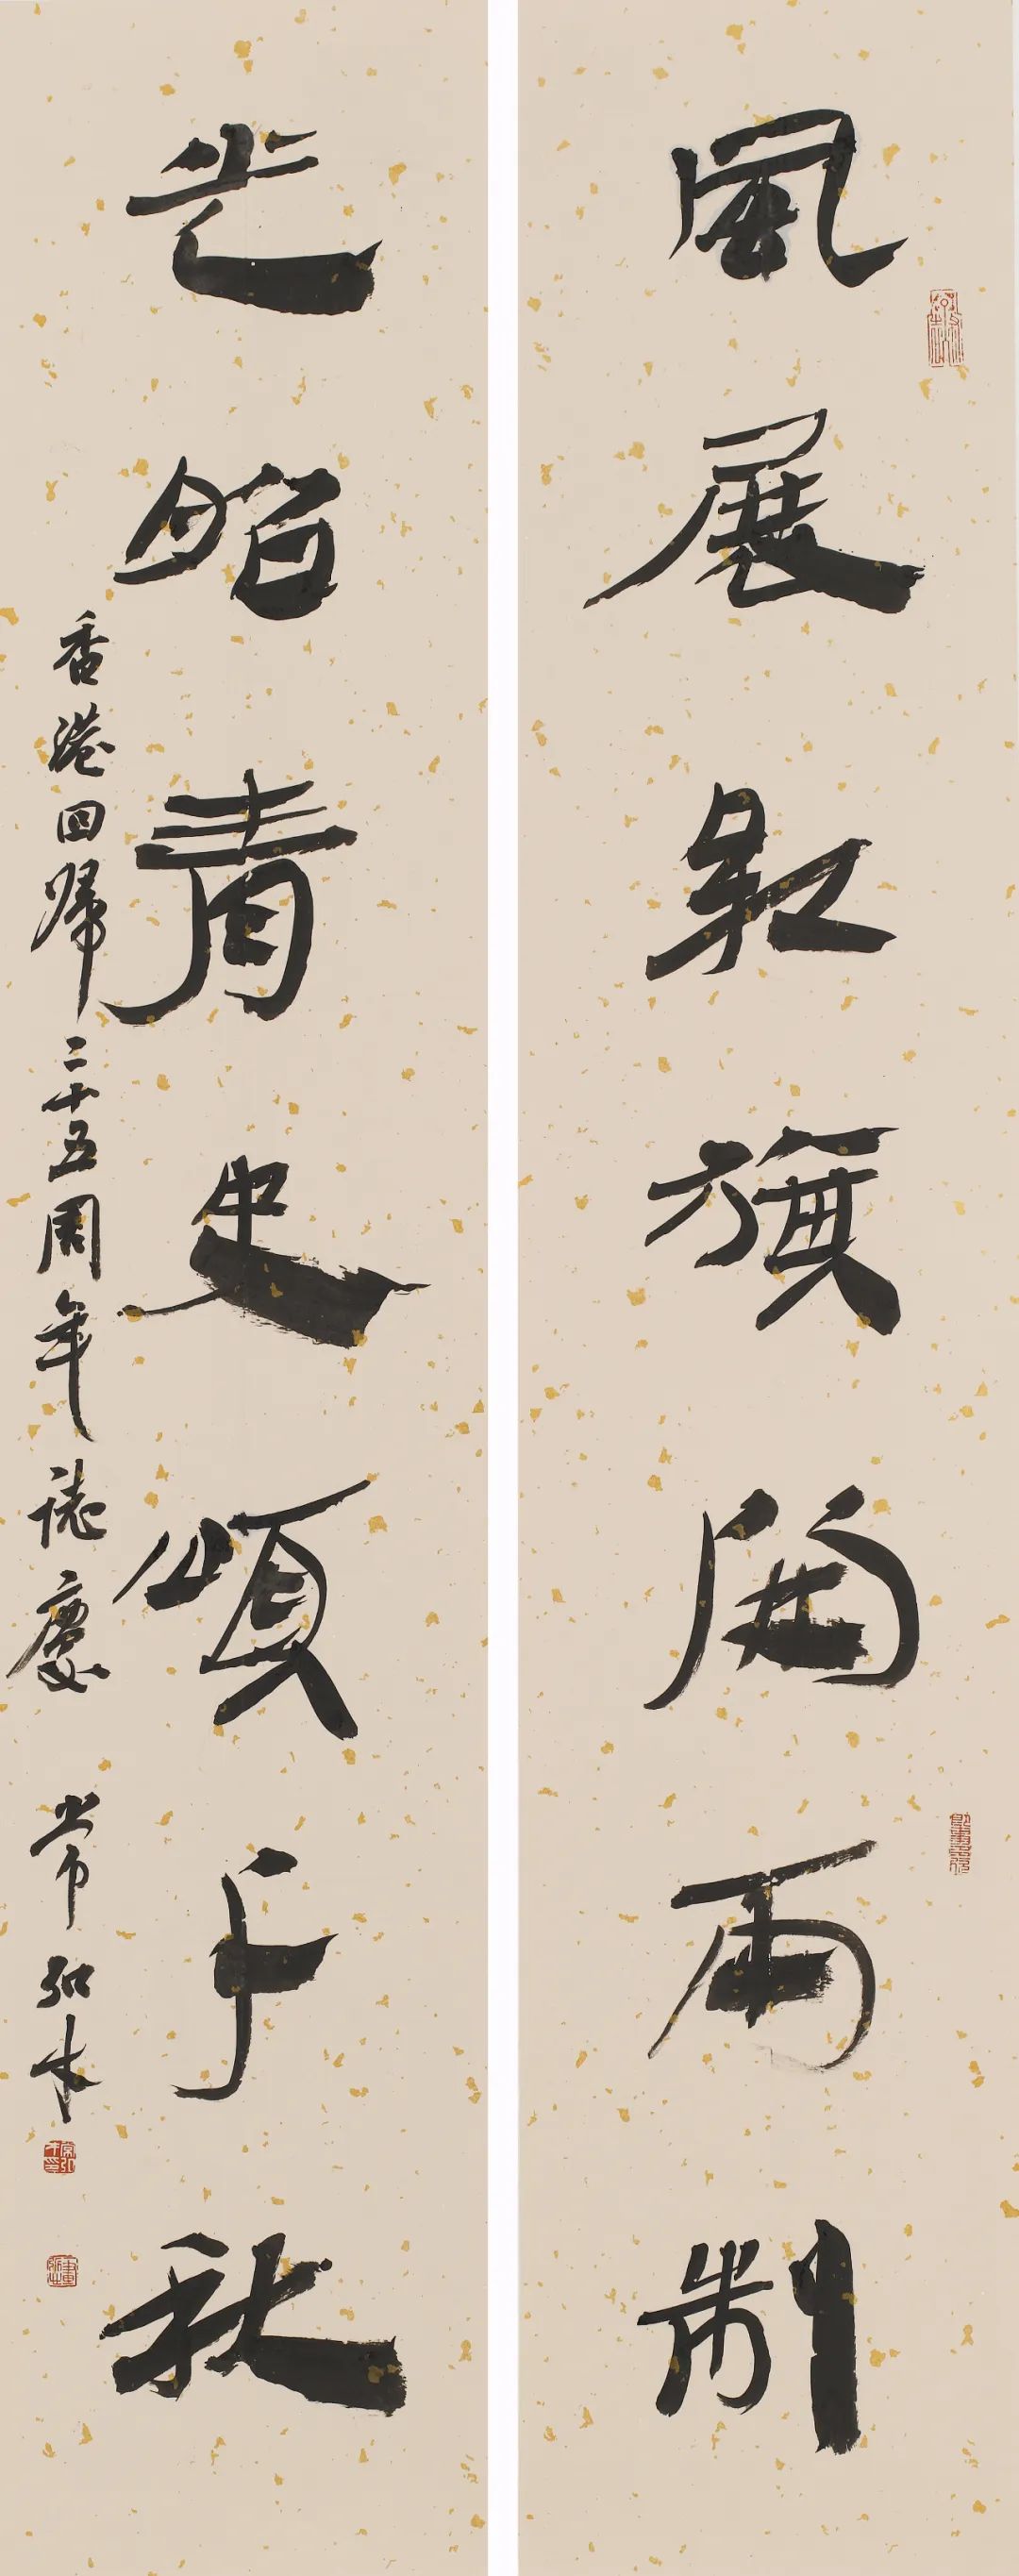 風展紅旗開兩制
光昭青史頌千秋
香港回歸二十五周年誌慶
常弘